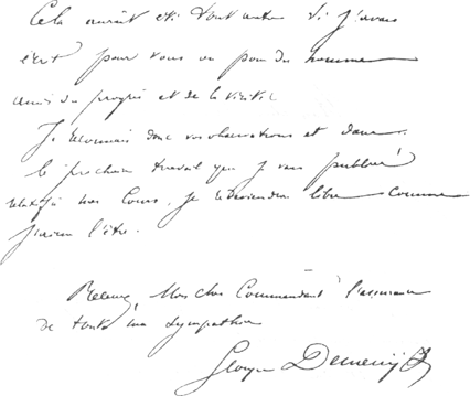 Cela aurait été tout autre si j'avais
écrit pour vous ou pour des hommes
amis du progrès et de la vérité.
Je reconnais donc vos observations et dans
le prochain travail que je vais publier
relatif à mes cours, je redeviendrai libre comme
j'aime l'être.
Recevez, Mon cher Commandant l'assurance
de toute ma sympathie
Georges Demenÿ